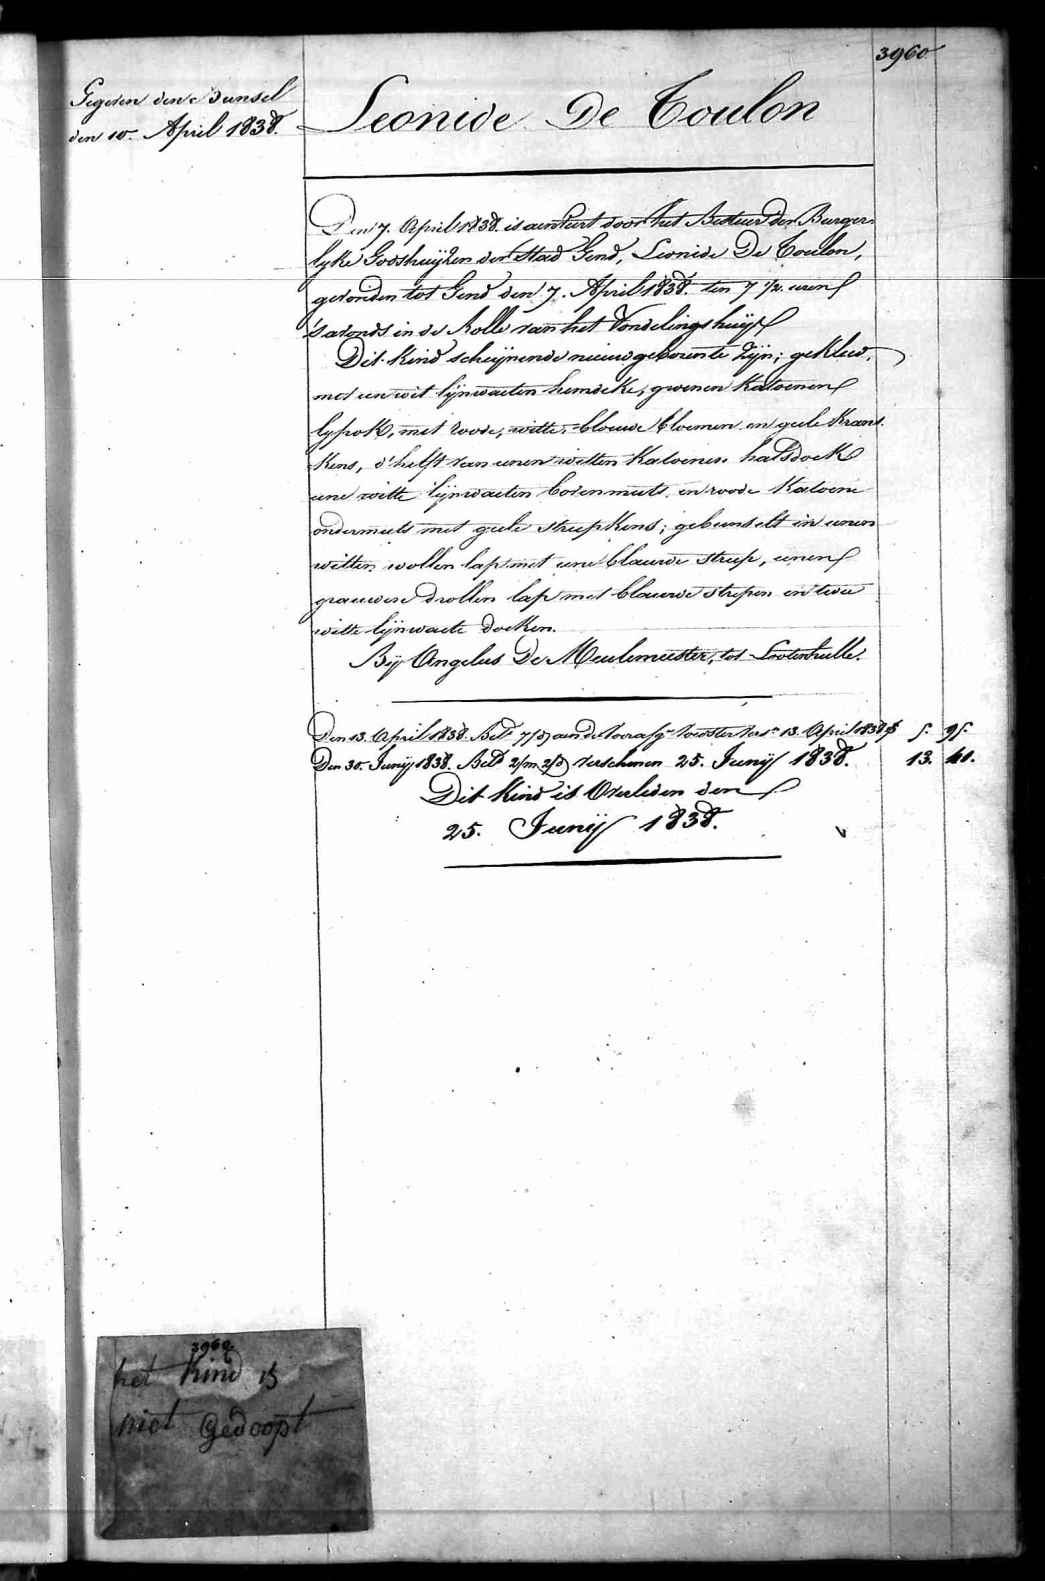 3960
Gegeven den Bunsel
den 10. April 1838.
Leonide De Toulon
Den 7. April 1838. is aenveirt door het Bestuer der Burger-
lyke Godshuijzen der Stad Gend, Leonide De Toulon,
gevonden tot Gend den 7. April 1838. ten 7 1/2. uren
's avonds in de Rolle van het Vondelingshuijs
Dit kind scheijnende nieuwgeboren te zijn; gekleed,
met een wit lijnwaeten hemdeke, groenen Katoenen
lypok, met roode, witte, blouwe bloemen en geele Krans-
kens, d'helft van eenen witten Katoenen halsdoek
eene witte lijnwaeten bovenmuts, en roode Katoene
ondermuts met geele streepkens; gebunselt in eenen
witten wollen lap met eene blauwe streep, eenen
grauwen drollen lap met blauwe strepen en twee
witte lijnwaete doeken.
Bij Angelus De Meulemeester, tot Lootenhulle.
Den 13. April 1838. Betd 7/d aen de voorafge voedster vers 13. April 1838 f 5. 95.
Den 30. Junij 1838. Betd 2/m 2/d verschenen 25. Junij 1838. 13. 41.
Dit Kind is Overleden den
25. Junij 1838.
3960
het Kind is
niet gedoopt